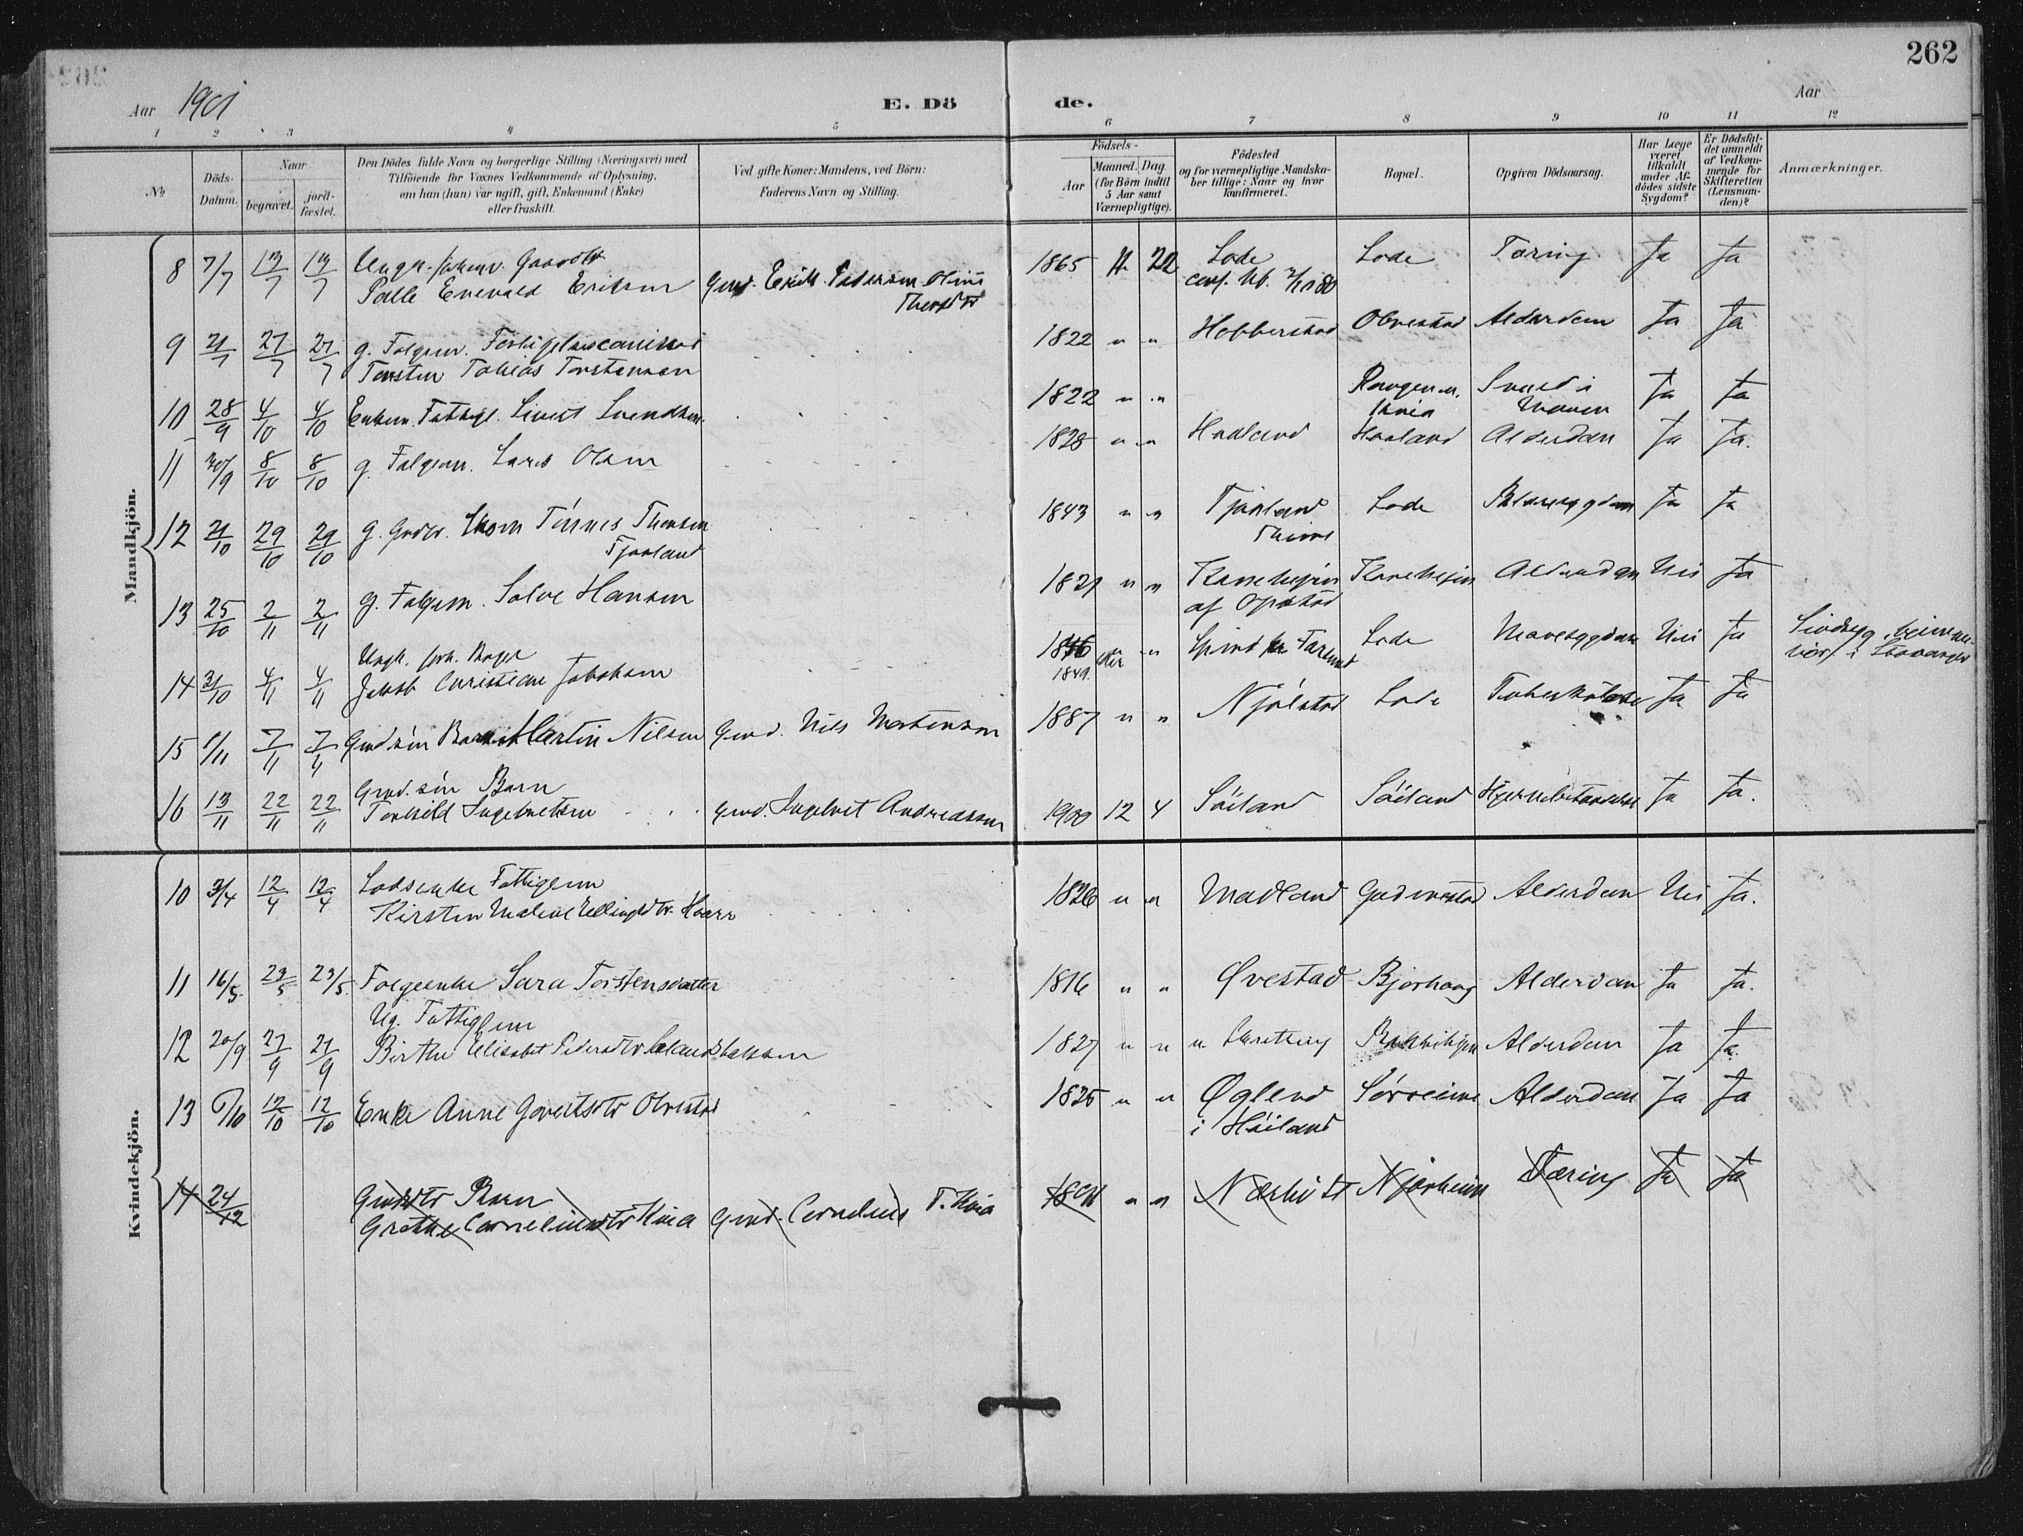 262
Aar 1901
E. Dö de.
Aar
1 2 3 4 5 6 7 8 9 10 11 12
№
Döds-Datum.
Naar
begravet.
jord-fæstet.
Den Dödes fulde Navn og borgerlige Stilling (Næringsvei) med
Tilföiende for Voxnes Vedkommende af Oplysning,
om han (hun) var ugift, gift, Enkemand (Enke)
eller fraskilt.
Ved gifte Koner: Mandens, ved Börn:
Faderens Navn og Stilling.
Födsels-
Aar
Maaned. Dag.
(for Börn indtil
5 Aar samt
Værnepligtige).
Födested
og for værnepligtige Mandska-
ber tillige: Naar og hvor
konfirmeret.
Bopæl.
Opgiven Dödsaarsag.
Har Læge
været
tilkaldt
under Af-
dödes sidste
Sygdom?
Er Dödsfal-
det anmeldt
af Vedkom-
mende for
Skifteretten
(Lensman-
den)?
Anmærkninger.
Mandkjön.
8 7/7 13/7 13/7
Palle Enevald Eriksen Gmd. Erik Pedersen
1865 22 Lode Lode Tæring Ja Ja
9 21/7 27/7 27/7 g. Folgem.
Torsten Tobias Torstensen
1822 " " Hobberstad Obrestad Alderdom Ja Ja
10 28/9 4/10 4/10 Enkem. Fattigl. Sivert Svendsen
1822 " " Ja Ja
11 30/9 8/10 8/10 g. Folgem. Lars Olsen
1828 " " Haaland Haaland Alderdom Ja Ja.
12 21/10 29/10 29/10 g. Tönnes Thomsen
Tjaaland
1843 " " Tjaaland Lode Ja Ja
Thime
13 25/10 2/11 2/11 g. Folgem. Salve Hansen
1821 " " Nei Ja
af Opstad
14 31/10 4/11 4/11
Jakob Christian Jakobsen
1849 " " Lode Mavesygdom Nei Ja
i Stavanger
15 1/11 7/11 7/11 Gmdsön Barn Martin Nilsen Gmd. Nils Mortensen
1887 " " Njölstad Lode Ja Ja
16 13/11 22/11 22/11 Gmd. sön Barn
Torkild Ingebretsen Gmd. Ingebret Andreassen
1900 12 4 Söiland Söiland Hjernebetændelse Ja Ja.
Kvindekjön.
10 3/4 12/4 12/4 Lodsenke Fattiglem
Kirsten Malene Ellingsdtr. Haarr
1826 " " Madland Alderdom Nei Ja.
11 16/5 23/5 23/5 Folgeenke Sara Torstensdatter
1816 " " Øvestad Bjorhaug Alderdom Ja Ja.
12 20/9 27/9 27/9 Ug. Fattiglem
Birthe Elisabet Pedersdtr
1827 " " Alderdom Ja Ja.
13 6/10 12/10 12/10 Enke Anne Govertsdtr Obrestad
1825 " " Øglend Sörreime Alderdom Ja Ja
i Höiland
14 24/12 Gmdsdtr Barn
Grethe Corneliusdtr Kvia Gmd. Cornelius T. Kvia
" " Njærheim Tæring Ja Ja